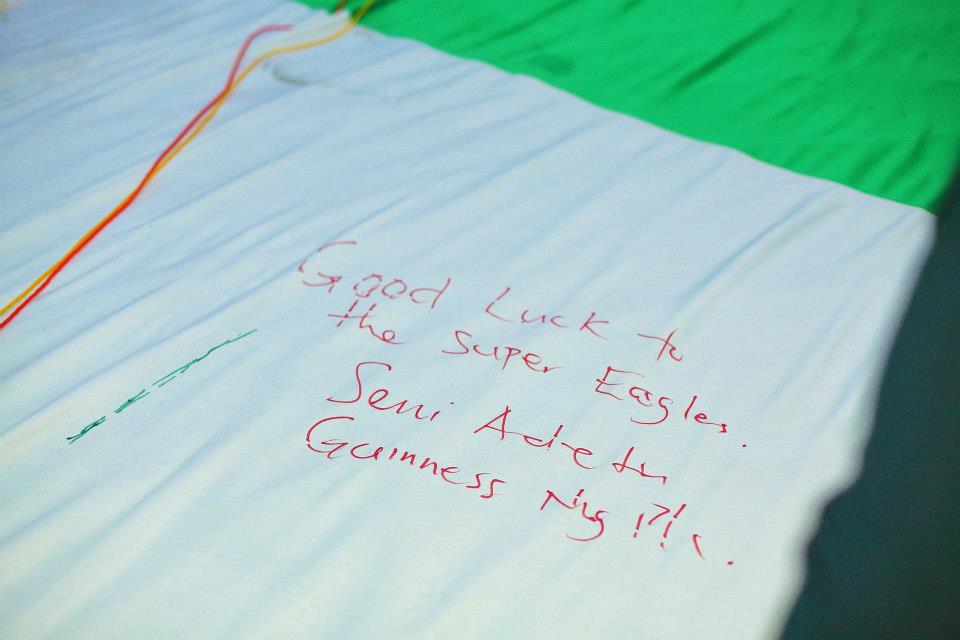 Good Luck to
the Super Eagles.
Seni Adetu
Guinness Nig Plc.